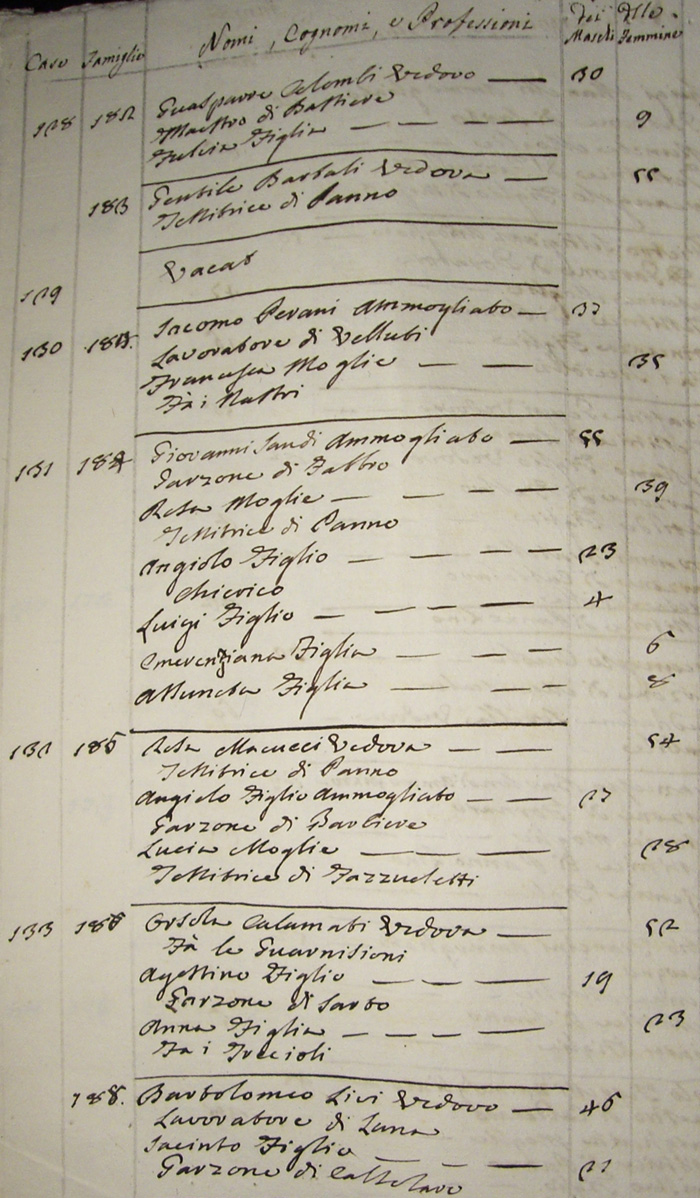 Case Famiglie Nomi, Cognomi, e Professioni dei Maschi Delle Femmine
128 182 Guasparre Colombi Vedovo — 30
Maestro di Battiere
Fulvia Figlia — — — — 9
183 Gentile Barbali Vedova — 55
Tessitrice di Panno
129 Vacat
130 Iacomo Perani Ammogliato — 33
Lavoratore di Velluti
Francesca Moglie — — — 35
Fà i Nastri
131 184 Giovanni Sandi Ammogliato — 55
Garzone di Fabbro
Rosa Moglie — — — — 39
Tessitrice di Panno
Angiolo Figlio — — — — 23
Chierico
Luigi Figlio — — — — 4
Emerenziana Figlia — — — 6
Assunta Figlia — — — 8
132 185 Rosa Macucci Vedova — — 54
Tessitrice di Panno
Angiolo Figlio Ammogliato — — 27
Garzone di Barbiere
Lucia Moglie — — — 28
Tessitrice di Fazzoletti
133 186 Orsola Calamati Vedova — — 52
Fà le Guarnisioni
Agostino Figlio — — — — 19
Garzone di Sarto
Anna Figlia — — — — 23
Fa i Treccioli
188. Bartolomeo Livi Vedovo — 46
Lavoratore di Lana
Iacinto Figlio — — — 21
Garzone di